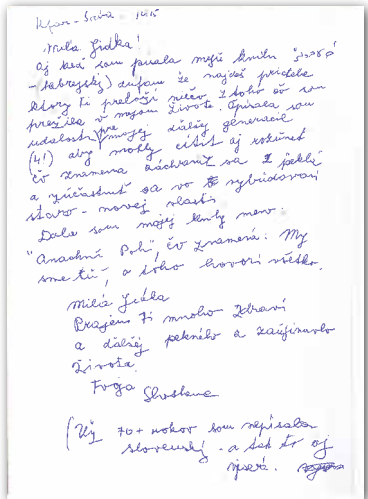 Kfar - Saba 1515
Milá Jidka!
Aj keď som písala moju knihu
- (hebrejsky) dúfam že najdeš priateľa
ktorý Ti preloží niečo z toho čo som
prežila v mojom živote. Opísala som
udalosti pre mojej ďalšej generácie
(4!) aby mohli cítiť aj rozumeť
čo znamená zachrániť sa z pekla
a zúčastniť sa vo vybudovaní
staro - novej vlasti
Dala som mojej knihy meno:
"Anachnu Poh", čo znamená: My
sme tu", a toho hovorí všetko.
Milá Jidka
Prajem Ti mnoho zdraví
a ďalšej pekného a zaujímavého
života.
Tvoja
(Už 70+ rokov som nepísala
slovensky - a tak to aj